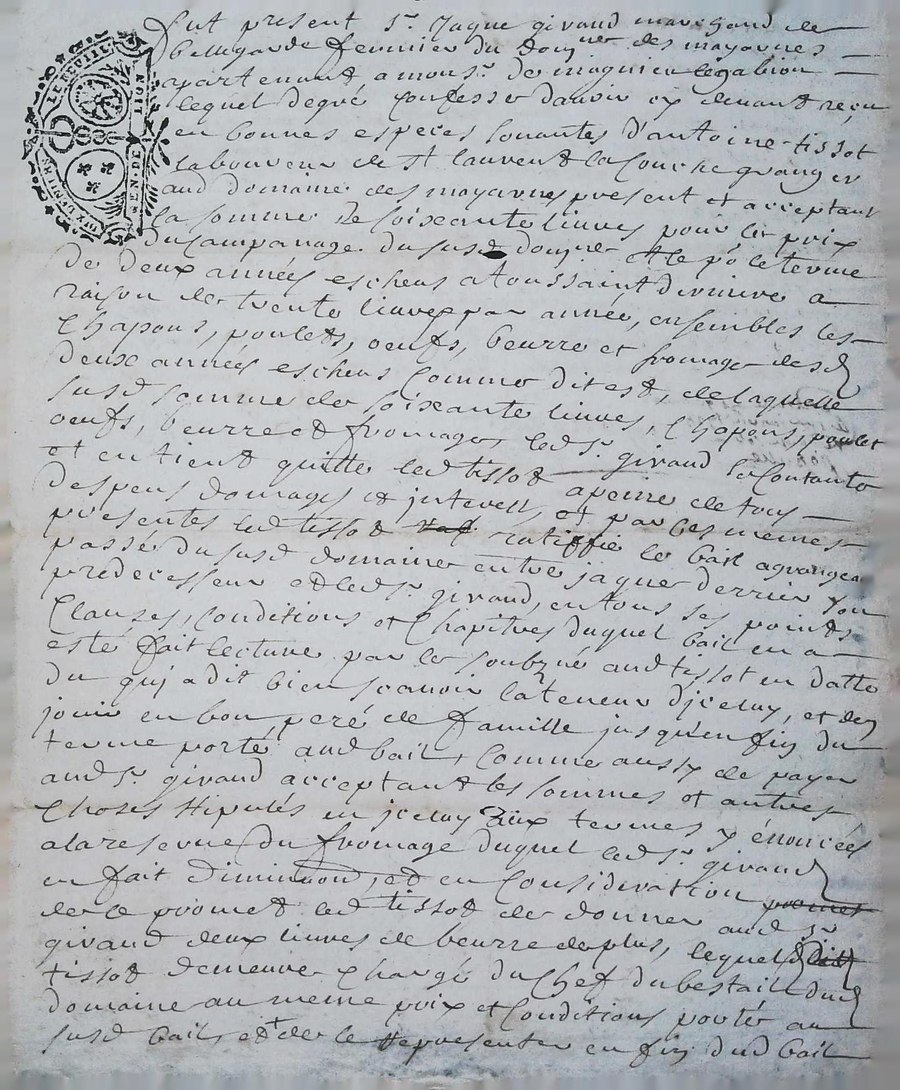 Fut present Sr. Jaque giraud marchand de
bellegarde fermier du domne des mayornes
apartenant a monsr. de magnieu legabion
lequel degré confesse davoir cy devant reçu
en bonnes especes sonantes d'antoine tissot
laboureur de st laurent la Conche granger
aud domaine des mayornes present et acceptant
la somme de soixante livres pour le prix
Du Campanage du susd domne et le po le terme
de deux années escheus a toussaint derniere a
raison de trente livres par année, ensembles les
Chapons, poulets, oeufs, beurre et fromage desd
deux années escheus Comme dit est, de laquelle
susd somme de soixante livres, Chapons, poulet
oeufs, beurre et fromage, led sr. giraud se Contante
et en tient quitte led tissot a peine de tous
despens domages et interest, et par ces mesmes
presentes led tissot ratiffie le bail a grangeа
passé du susd domaine entre jaque derrier son
predecesseur et led sr. giraud, en tous ses points
Clauzes, Conditions et Chapitres duquel bail en a
esté fait lecture par le soubzné aud tissot en datte
du qui a dit bien scavoir la teneur d'jceluy, et den
jouir en bon peré de famille jusqu'en fin du
terme porté aud bail, Comme aussy de payer
aud sr. giraud acceptant les sommes et autres
Choses stipulés en jceluy aux termes y énoncées
a la reserve du fromage duquel led sr. giraud
en fait diminuon, et en Consideration promet
de ce promet led tissot de donner aud sr
giraud deux livres de beurre de plus, lequel
tissot demeure Chargé du Chef du bestail dud
domaine au meme prix et Conditions porté au
susd bail, et de le representer en fin dud bail
GEN. DE LION
DIX DENIERS
LE FEUIL